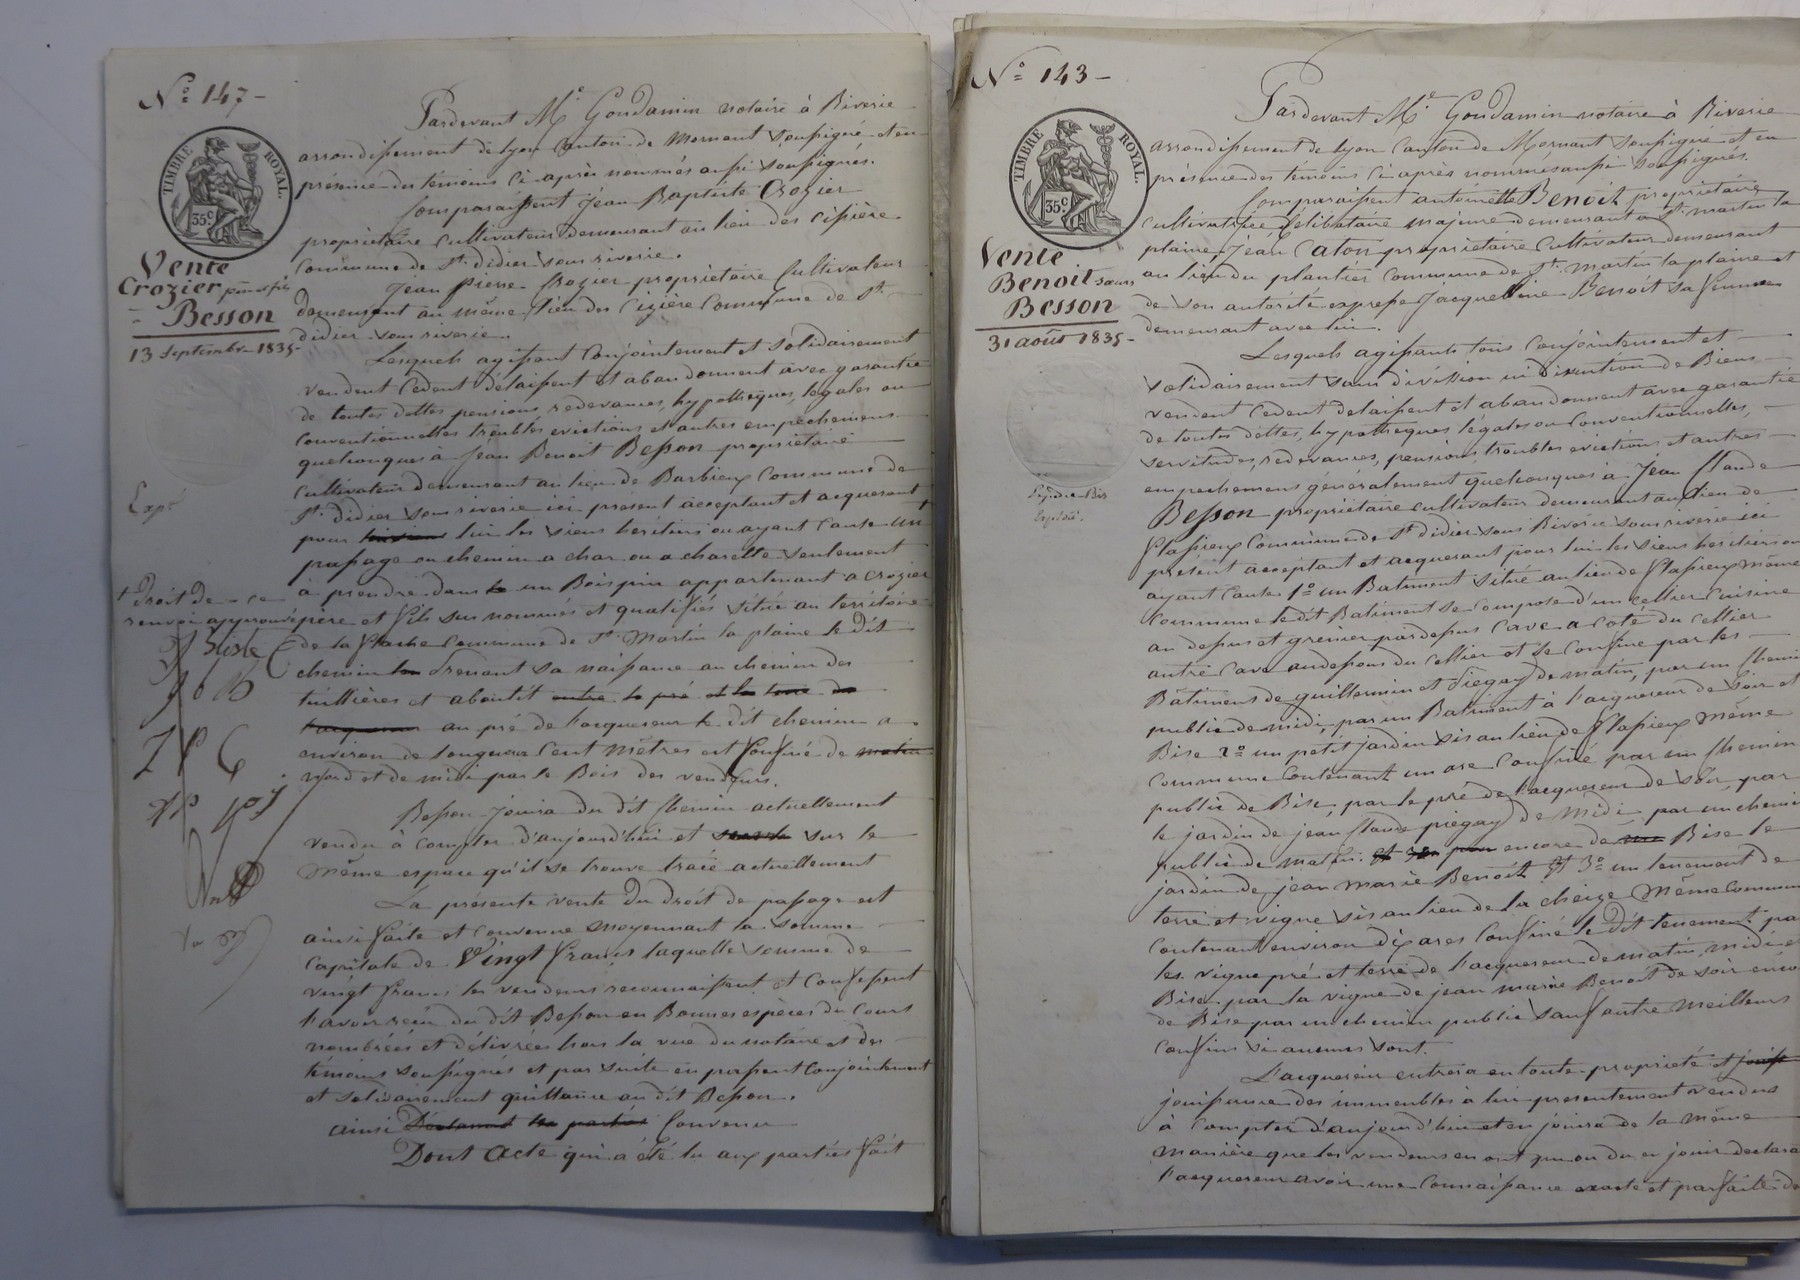 N.° 147 -
TIMBRE ROYAL.
35c
Vente
Crozier père et fils
=
Besson
13 septembre 1835 -
Pardevant Me Goudamin notaire à Riverie
arrondissement de lyon Canton de Mornant soussigné et en
présence des témoins ci après nommés aussi soussignés.
Comparaissent Jean Baptiste Crozier
propriétaire cultivateur demeurant au lieu des
Commune de St. didier sous riverie.
Jean pierre Crozier propriétaire Cultivateur
demeurant au même lieu des Commune de St.
didier sous riverie.
Lesquels agissant Conjointement et solidairement
vendent Cedent délaissent et abandonnent avec garantie
de toutes dettes pensions, redevances, hypothèques, légales ou
conventionnelles troubles evictions et autres empêchemens
quelconques à Jean Benoit Besson propriétaire
Cultivateur demeurant au lieu de Barbieux Commune de
St. didier sous riverie ici présent acceptant et acquerant
pour lui les siens heritiers ou ayant Cause un
passage ou chemin a char ou a charette seulement
à prendre dans un Bois pin appartenant a Crozier
père et fils sus nommés et qualifiés situé au territoire
de la Commune de St. Martin la plaine le dit
chemin prenant sa naissance au chemin des
tuillières et aboutit
au pré de l'acquereur le dit chemin a
environ de longueur Cent mètres est Confiné de matin
Nord et de midi par le Bois des vendeurs.
Expé
+ Droit de
renvoi approuvé
Besson jouira du dit Chemin actuellement
vendu à compter d'aujourd'hui et sur le
même espace qu'il se trouve tracé actuellement
La présente vente du Droit de passage est
ainsi faite et convenue moyennant la somme
Capitale de Vingt francs laquelle somme de
vingt francs les vendeurs reconnaissent et Confessent
l'avoir reçu du dit Besson en Bonnes espèces du Cours
nombrées et délivrées hors la vue du notaire et des
témoins soussignés et par suite en passent Conjointement
et solidairement quittance au dit Besson.
ainsi Déclarent les parties Convenu
Dont Acte qui a été lu aux parties fait
N.° 143 -
TIMBRE ROYAL.
35c
Vente
Benoit sœurs
Besson
31 août 1835 -
Expédié.
Pardevant Me Goudamin notaire à Riverie
arrondissement de lyon Canton de Mornant soussigné et en
présence des témoins ci après nommés aussi soussignés.
Comparaissent antoinette Benoit propriétaire
cultivatrice Celibataire majeure demeurant a St. martin la
plaine, Jean Caton propriétaire Cultivateur demeurant
au lieu du plantier Commune de St. Martin la plaine et
de son autorité expresse Jacqueline Benoit sa femme
demeurant avec lui.
Lesquels agissants tous conjointement et
solidairement sans division ni discution de Biens
vendent Cedent delaissent et abandonnent avec garantie
de toutes dettes, hypothèques légales ou Conventionnelles,
servitudes, redevances, pensions, troubles evictions et autres
empechemens généralement quelconques à Jean Claude
Besson propriétaire cultivateur demeurant au lieu de
Commune de St didier sous Riverie ici
présent acceptant et acquerant pour lui les siens heritiers ou
ayant Cause 1° un Batiment situé au lieu de même
Commune le dit Batiment se Compose d'un cellier Cuisine
au dessus et grenier par dessus Cave a coté du Cellier
autre Cave audessous du Cellier et se Confine par les
Bâtiments de guillermin et de matin, par un Chemin
public de midi, par un Batiment à l'acquereur de Soir et
Bise 2° un petit jardin sis au lieu de même
Commune Contenant un are Confiné par un Chemin
public de Bise, par le pré de l'acquereur de soir, par
le jardin de jean Claude de Midi par un chemin
public de matin. encore de Bise le
jardin de jean marie Benoit Et 3° un tenement de
terre et vigne sis au lieu de la Même Commune
Contenant environ dix ares Confiné le dit tenement par
les vigne pré et terre de l'acquereur de matin, midi et
Bise par la vigne de jean marie Benoit de soir encore
de Bise par un chemin public sauf autre meilleurs
Confins si aucuns sont.
L'acquereur entrera en toute propriété et
jouissance des immeubles à lui presentement vendus
à Compter d'aujourd'hui et en jouira de la même
manière que les vendeurs en ont pu ou du en jouir declarant
l'acquereur avoir une Connaissance exacte et parfaite de